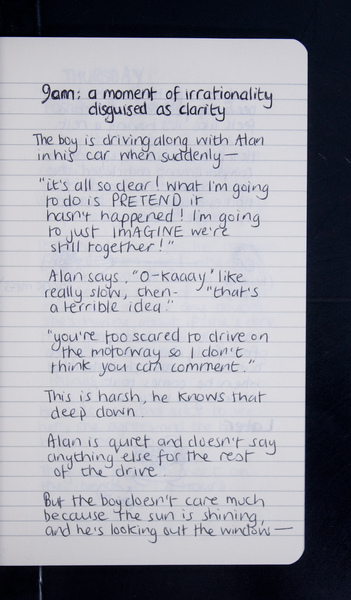 9am: a moment of irrationality
disguised as clarity
The boy is driving along with Alan
in his car when suddenly—
"it's all so clear! What I'm going
to do is PRETEND it
hasn't happened! I'm going
to just IMAGINE we're
still together!"
Alan says, "O-kaaay' like
really slow, then- "that's
a terrible idea."
"you're too scared to drive on
the motorway so I don't
think you can comment."
This is harsh, he knows that
deep down.
Alan is quiet and doesn't say
anything else for the rest
of the drive.
But the boy doesn't care much
because the sun is shining,
and he's looking out the window—